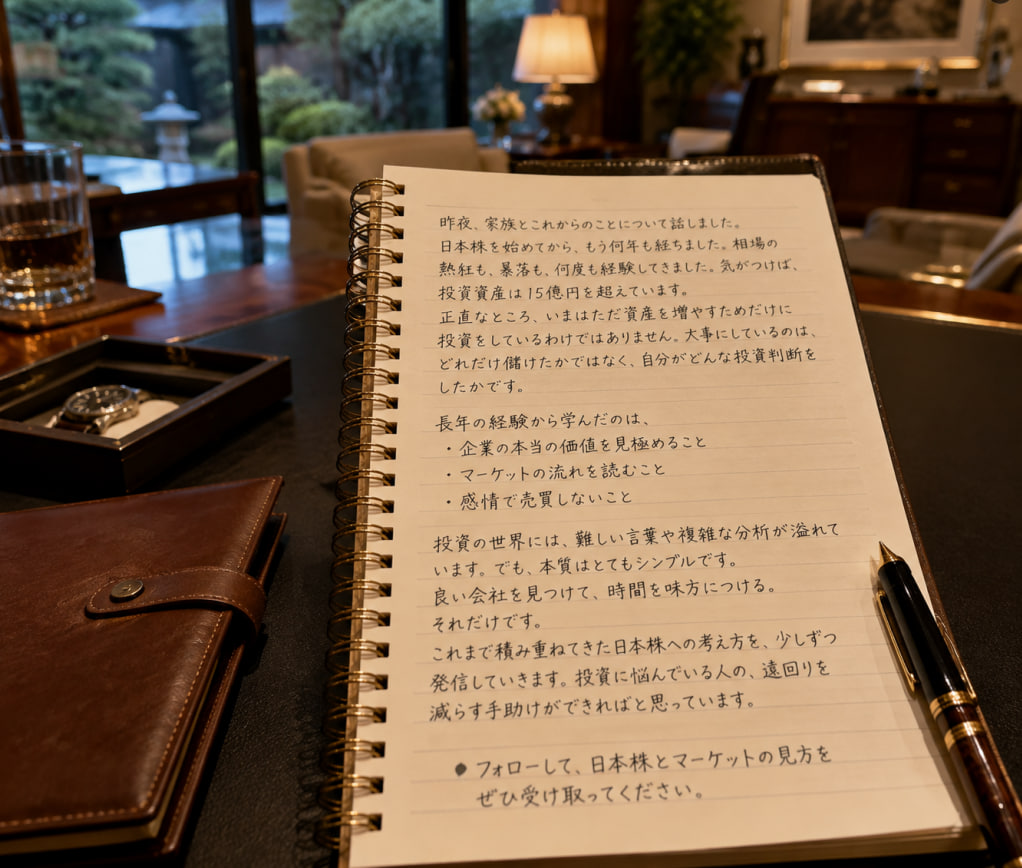 昨夜、家族とこれからのことについて話しました。
日本株を始めてから、もう何年も経ちました。相場の
熱狂も、暴落も、何度も経験してきました。気がつけば、
投資資産は15億円を超えています。
正直なところ、いまはただ資産を増やすためだけに
投資をしているわけではありません。大事にしているのは、
どれだけ儲けたかではなく、自分がどんな投資判断を
したかです。
長年の経験から学んだのは、
・企業の本当の価値を見極めること
・マーケットの流れを読むこと
・感情で売買しないこと
投資の世界には、難しい言葉や複雑な分析が溢れて
います。でも、本質はとてもシンプルです。
良い会社を見つけて、時間を味方につける。
それだけです。
これまで積み重ねてきた日本株への考え方を、少しずつ
発信していきます。投資に悩んでいる人の、遠回りを
減らす手助けができればと思っています。
● フォローして、日本株とマーケットの見方を
ぜひ受け取ってください。